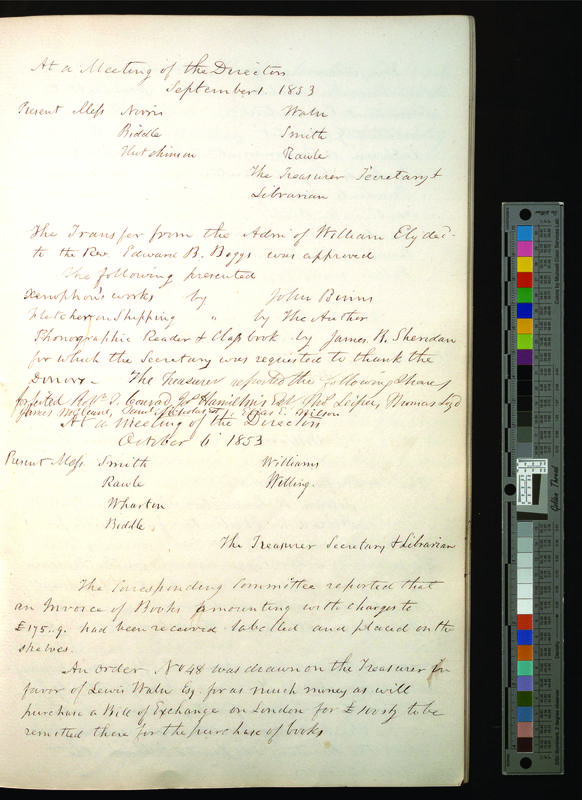 At a Meeting of the Directors
September 1. 1853
Present Mess Norris Waln
Biddle Smith
Hutchinson Rawle
The Treasurer Secretary &
Librarian
The Transfer from the Adm of William Ely dec
to the Rev Edward B. Boggs was approved
The following presented
Xenophon's works by John Binns
Fletcher on Shipping " by The Author
Phonographic Reader & Class book by James H. Sheridan
for which the Secretary was requested to thank the
Donors – The Treasurer reported the following Shares
forfeited Conrad, Hamilton's Est Leiper, Thomas
James Wilson
At a Meeting of the Directors
October 6 1853
Present Mess Smith Williams
Rawle Welling.
Wharton
Biddle
The Treasurer Secretary & Librarian
The Corresponding Committee reported that
an Invoice of Books amounting with charges to
£175..9. had been received labelled and placed on the
shelves.
An order No 48 was drawn on the Treasurer in
favor of Lewis Waln Esq. for as much money as will
purchase a Bill of Exchange on London for £100 stg to be
remitted there for the purchase of books
Golden Thread